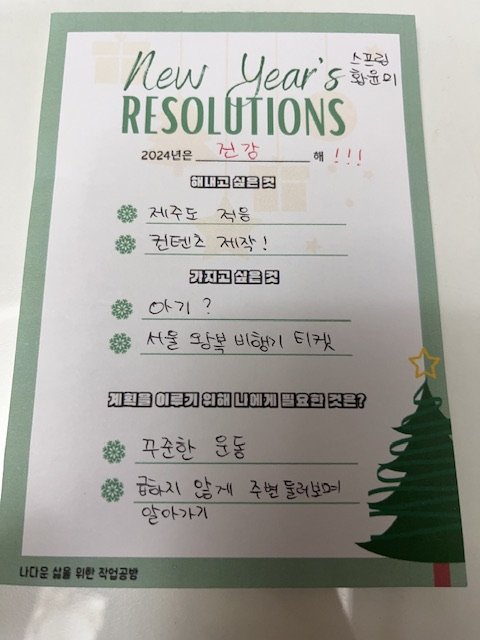 New Year's
스프링
황윤미
RESOLUTIONS
2024년은 건강 해 !!!
해내고 싶은 것
제주도 적응
컨텐츠 제작!
가지고 싶은 것
아기?
서울 왕복 비행기 티켓
계획을 이루기 위해 나에게 필요한 것은?
꾸준한 운동
급하지 않게 주변 둘러보며
알아가기
나다운 삶을 위한 작업공방